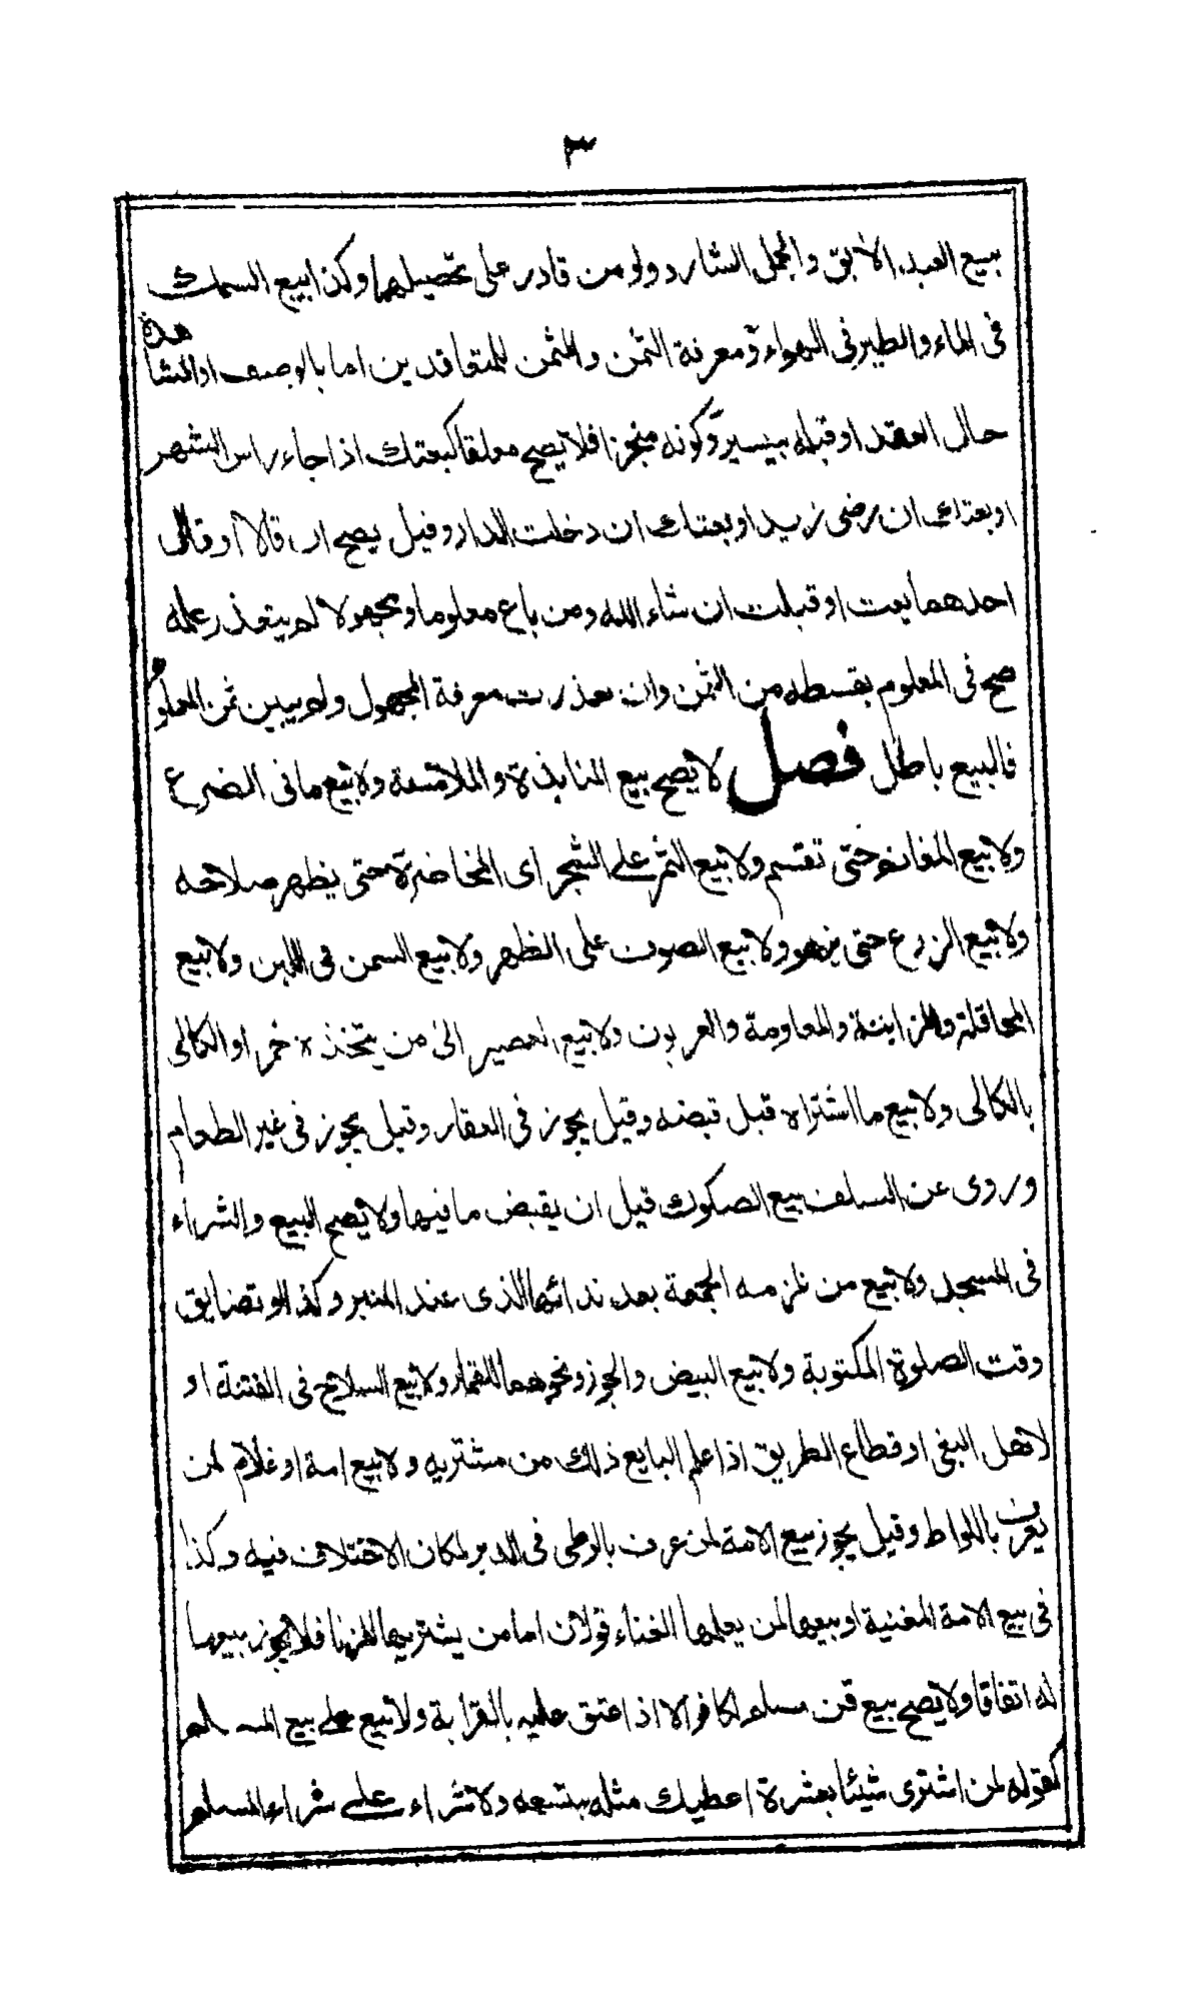 ٣
بيع العبد الآبق والجمل الشارد ولو من قادر على تحصيلهما وكذا بيع السمك
فى الماء والطير فى الهواء ومعرفة الثمن والمثمن للمتعاقدين اما بالوصف او المشاهدة
حال العقد او قبله بيسير وكونه منجزا فلا يصح معلقا كبعتك اذا جاء راس الشهر
او بعتك ان رضى زيد او بعتك ان دخلت الدار وقيل يصح ان قالا او قال
احدهما بعت او قبلت ان شاء الله ومن باع معلوما ومجهولا لم يتعذر علمه
صح فى المعلوم بقسطه من الثمن وان تعذرت معرفة المجهول ولم يبين ثمن المعلوم
فالبيع باطل فصل لا يصح بيع المنابذة والملامسة ولا بيع ما فى الضرع
ولا بيع المغانم حتى تقسم ولا بيع الثمر على الشجر اى المخاضرة حتى يظهر صلاحه
ولا بيع الزرع حتى يزهو ولا بيع الصوف على الظهر ولا بيع السمن فى اللبن ولا بيع
المحاقلة والمزابنة والمعاومة والعربون ولا بيع العصير الى من يتخذه خمرا او الكالى
بالكالى ولا بيع ما اشتراه قبل قبضه وقيل يجوز فى العقار وقيل يجوز فى غير الطعام
وروى عن السلف بيع الصكوك قبل ان يقبض ما فيها ولا يصح البيع والشراء
فى المسجد ولا بيع من تلزمه الجمعة بعد ندائها الذى عند المنبر وكذا لو تضايق
وقت الصلوة المكتوبة ولا بيع البيض والجوز ونحوهما للقمار ولا بيع السلاح فى الفتنة او
لاهل البغى او قطاع الطريق اذا علم البايع ذلك من مشتريه ولا بيع امة او غلام لمن
يعرف باللواط وقيل يجوز بيع الامة لمن عرف بالوطى فى الدبر لمكان الاختلاف فيه وكذا
فى بيع الامة المغنية او بيعها لمن يعلمها الغناء قولان اما من يشتريها للزنا فلا يجوز بيعها
له اتفاقا ولا يصح بيع قن مسلم لكافر الا اذا عتق عليه بالقرابة ولا بيع على بيع المسلم
كقوله لمن اشترى شيئا بعشرة اعطيك مثله بتسعه ولا شراء على شراء المسلم